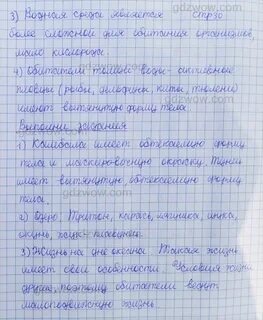 3) Водная среда является стр30
более сложной для обитания организмов,
мало кислорода.
4) Обитатели толщи воды - активные
пловцы (рыбы, дельфины, киты, тюлени)
имеют вытянутую форму тела.
Выполни задания
1) Камбала имеет обтекаемую форму
тела и маскировочную окраску. Тунец
имеет вытянутую, обтекаемую форму
тела.
2) Озеро: Тритон, карась, лягушка, щука,
окунь, плавунец.
3) Жизнь на дне океана Такая жизнь
имеет свои особенности. Условия жизни
другие, поэтому обитатели ведут
малоподвижную жизнь.
gdzwow.com